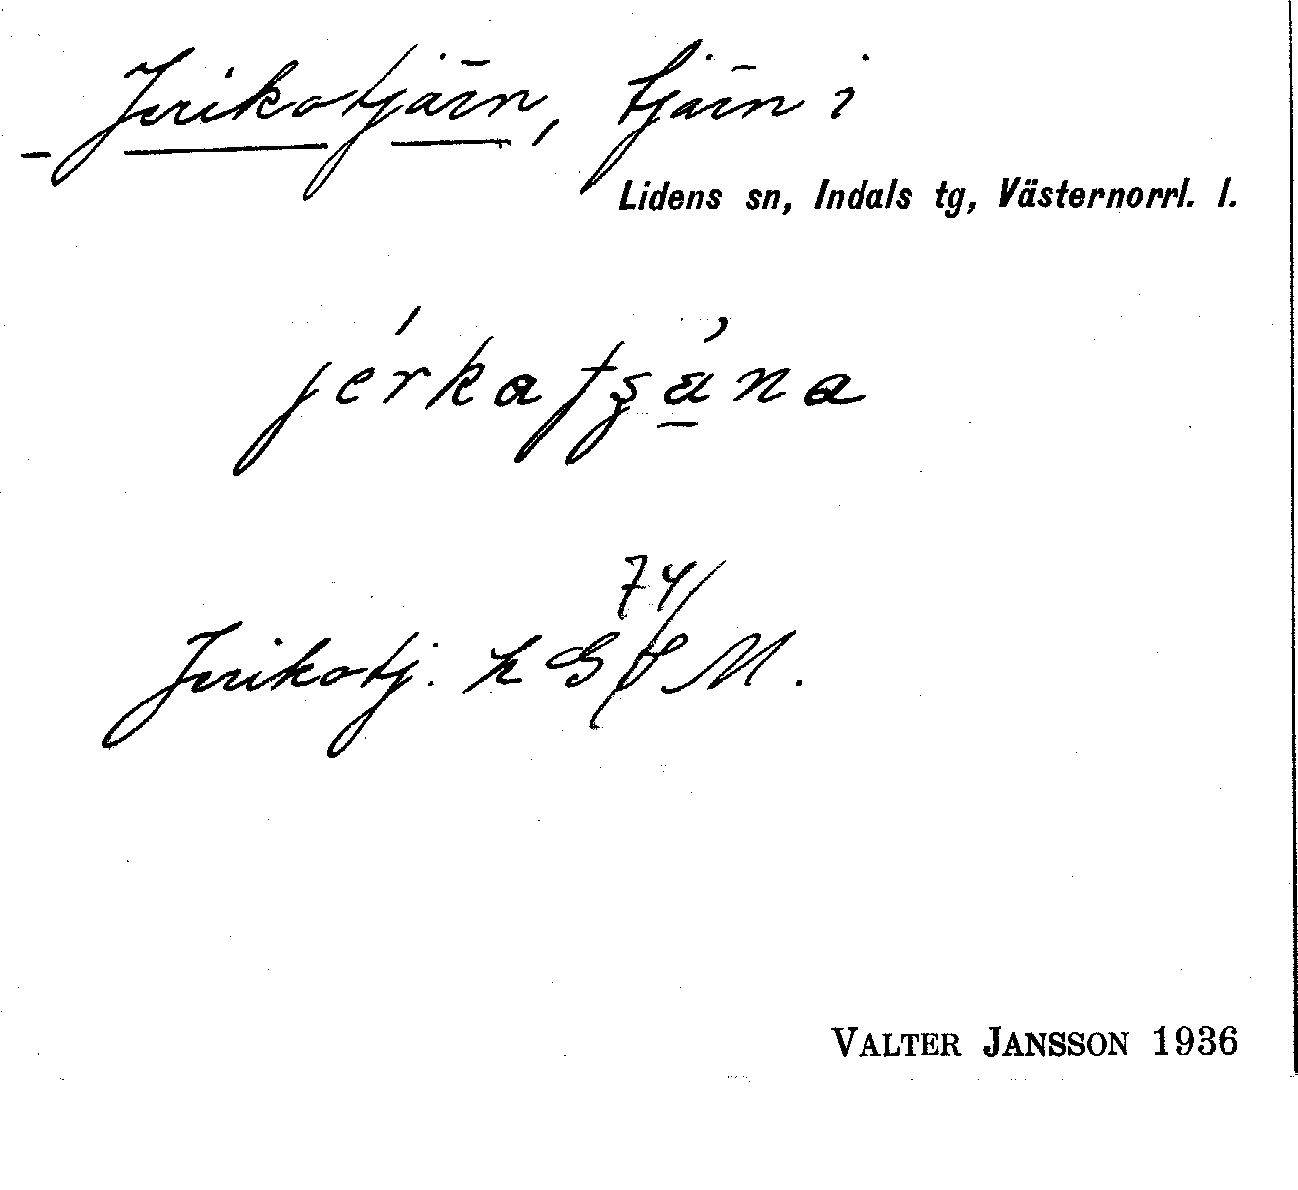 Jerikotjärn, tjärn i
Lidens sn, Indals tg, Västernorrl. l.
jerkatʂäna
74/
Jerikotj. k GSM.
VALTER JANSSON 1936